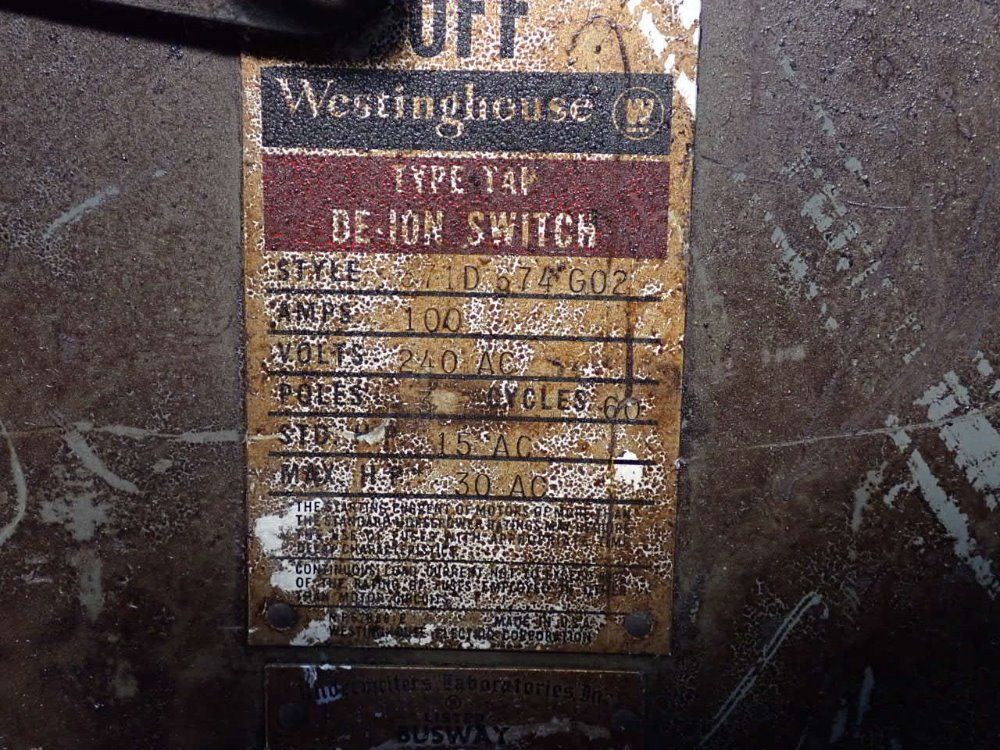 OFF
Westinghouse W
TYPE TAP
DE-ION SWITCH
STYLE 371D 574 G02
AMPS 100
VOLTS 240 AC
POLES 3 CYCLES 60
STD. H.P. 15 AC
MAX. H.P. 30 AC
THE STARTING CURRENT OF MOTORS OF MORE THAN
THE STANDARD HORSEPOWER RATINGS MAY REQUIRE
THE USE OF FUSES WITH APPROPRIATE TIME
DELAY CHARACTERISTICS.
CONTINUOUS LOAD CURRENT NOT TO EXCEED
OF THE RATING OF FUSES EMPLOYED IN OTHER
THAN MOTOR CIRCUITS
MADE IN U.S.A.
WESTINGHOUSE ELECTRIC CORPORATION
Underwriters Laboratories, Inc.
LISTED
BUSWAY